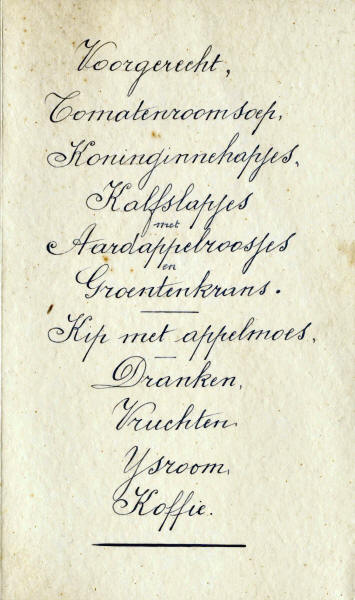 Voorgerecht,
Tomatenroomsoep,
Koninginnehapjes,
Kalfslapjes
met
Aardappelroosjes
en
Groentenkrans.
Kip met appelmoes,
Dranken,
Vruchten
Ysroom,
Koffie.